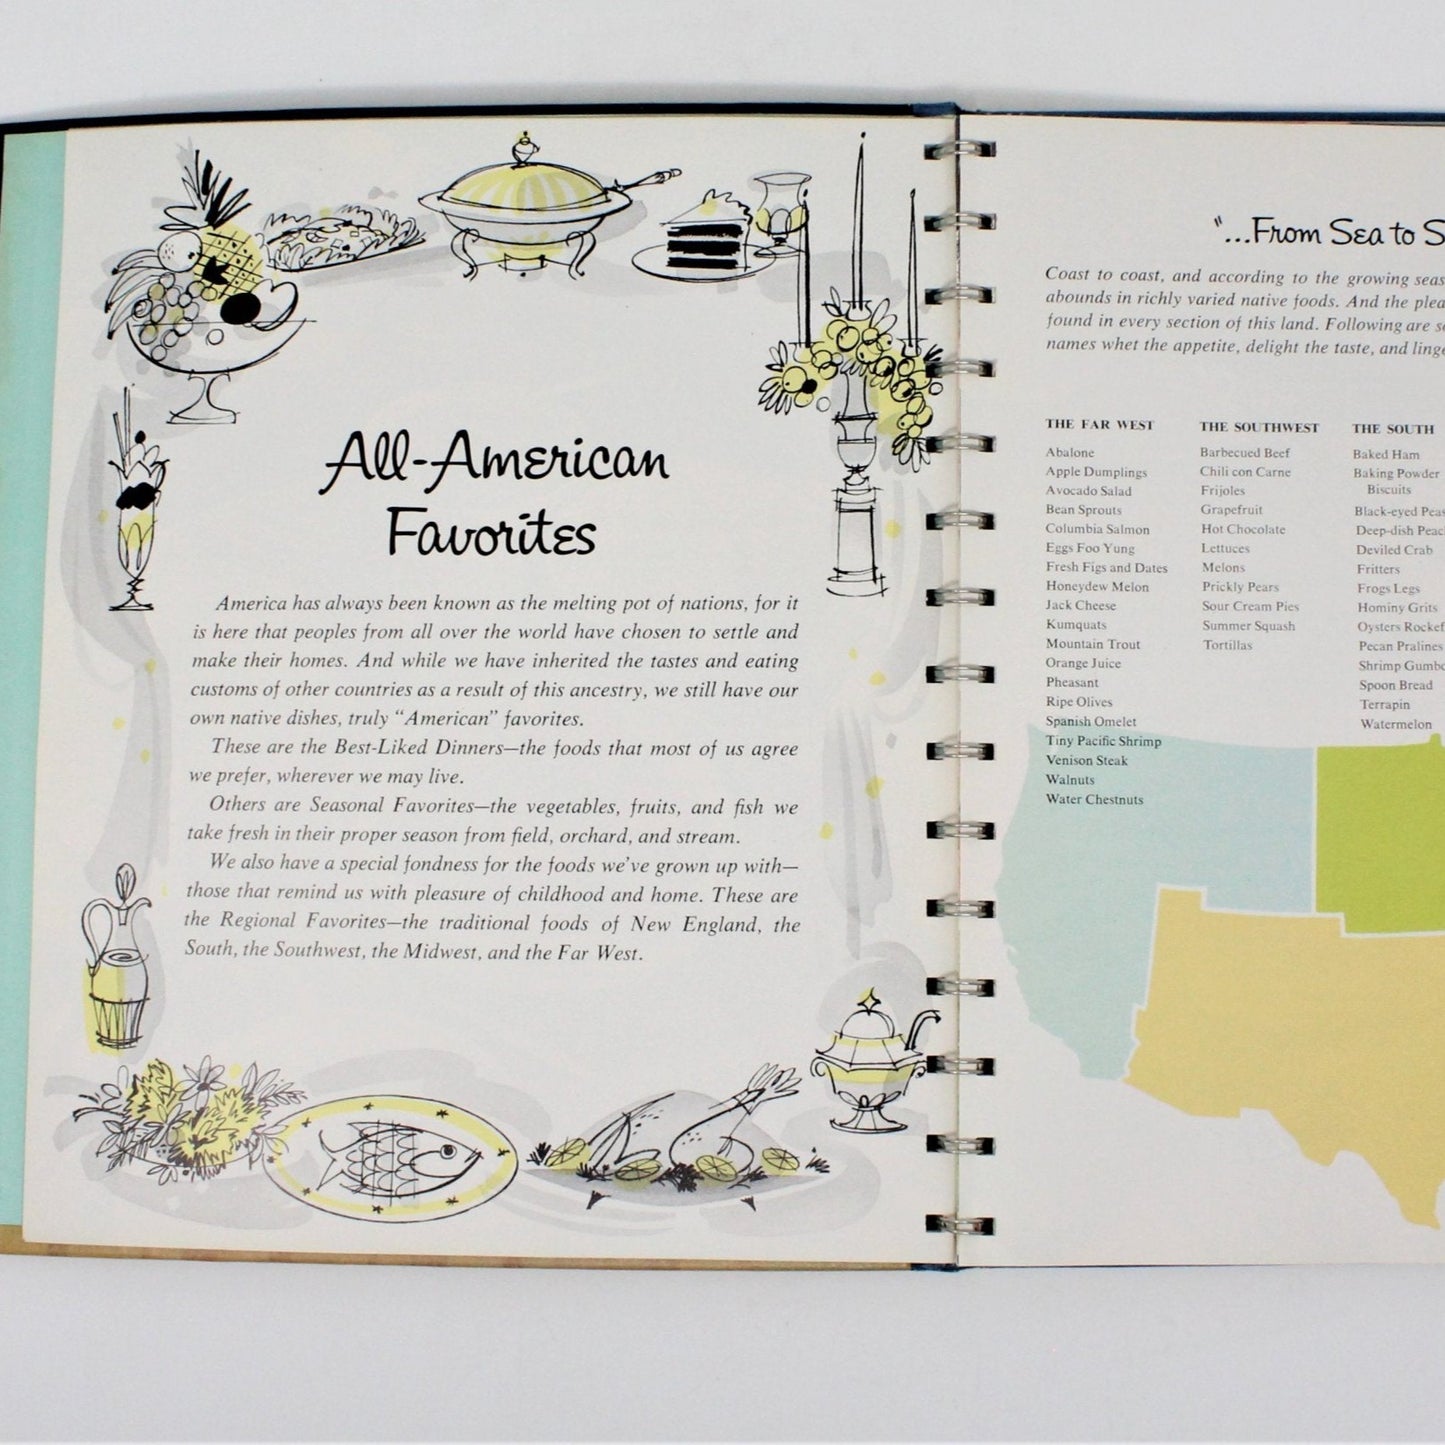 All-American
Favorites
America has always been known as the melting pot of nations, for it
is here that peoples from all over the world have chosen to settle and
make their homes. And while we have inherited the tastes and eating
customs of other countries as a result of this ancestry, we still have our
own native dishes, truly “American” favorites.
These are the Best-Liked Dinners—the foods that most of us agree
we prefer, wherever we may live.
Others are Seasonal Favorites—the vegetables, fruits, and fish we
take fresh in their proper season from field, orchard, and stream.
We also have a special fondness for the foods we’ve grown up with—
those that remind us with pleasure of childhood and home. These are
the Regional Favorites—the traditional foods of New England, the
South, the Southwest, the Midwest, and the Far West.
“...From Sea to
Coast to coast, and according to the growing
abounds in richly varied native foods. And the
found in every section of this land. Following are
names whet the appetite, delight the taste, and
THE FAR WEST
Abalone
Apple Dumplings
Avocado Salad
Bean Sprouts
Columbia Salmon
Eggs Foo Yung
Fresh Figs and Dates
Honeydew Melon
Jack Cheese
Kumquats
Mountain Trout
Orange Juice
Pheasant
Ripe Olives
Spanish Omelet
Tiny Pacific Shrimp
Venison Steak
Walnuts
Water Chestnuts
THE SOUTHWEST
Barbecued Beef
Chili con Carne
Frijoles
Grapefruit
Hot Chocolate
Lettuces
Melons
Prickly Pears
Sour Cream Pies
Summer Squash
Tortillas
THE SOUTH
Baked Ham
Baking Powder
Biscuits
Black-eyed
Deep-dish
Deviled Crab
Fritters
Frogs Legs
Hominy Grits
Oysters
Pecan Pralines
Shrimp
Spoon Bread
Terrapin
Watermelon